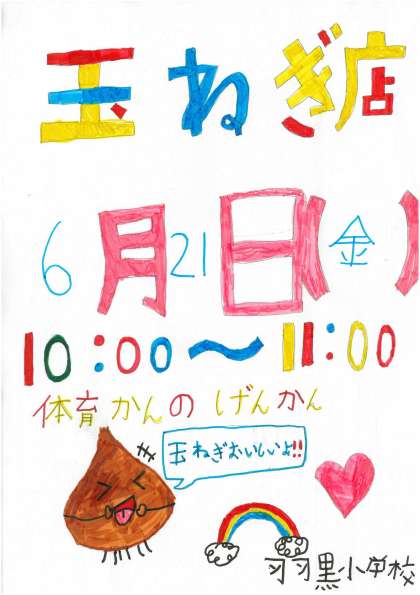 玉ねぎ店
6月21日(金)
10:00〜11:00
体育かんの げんかん
玉ねぎおいしいよ!!
羽黒小学校